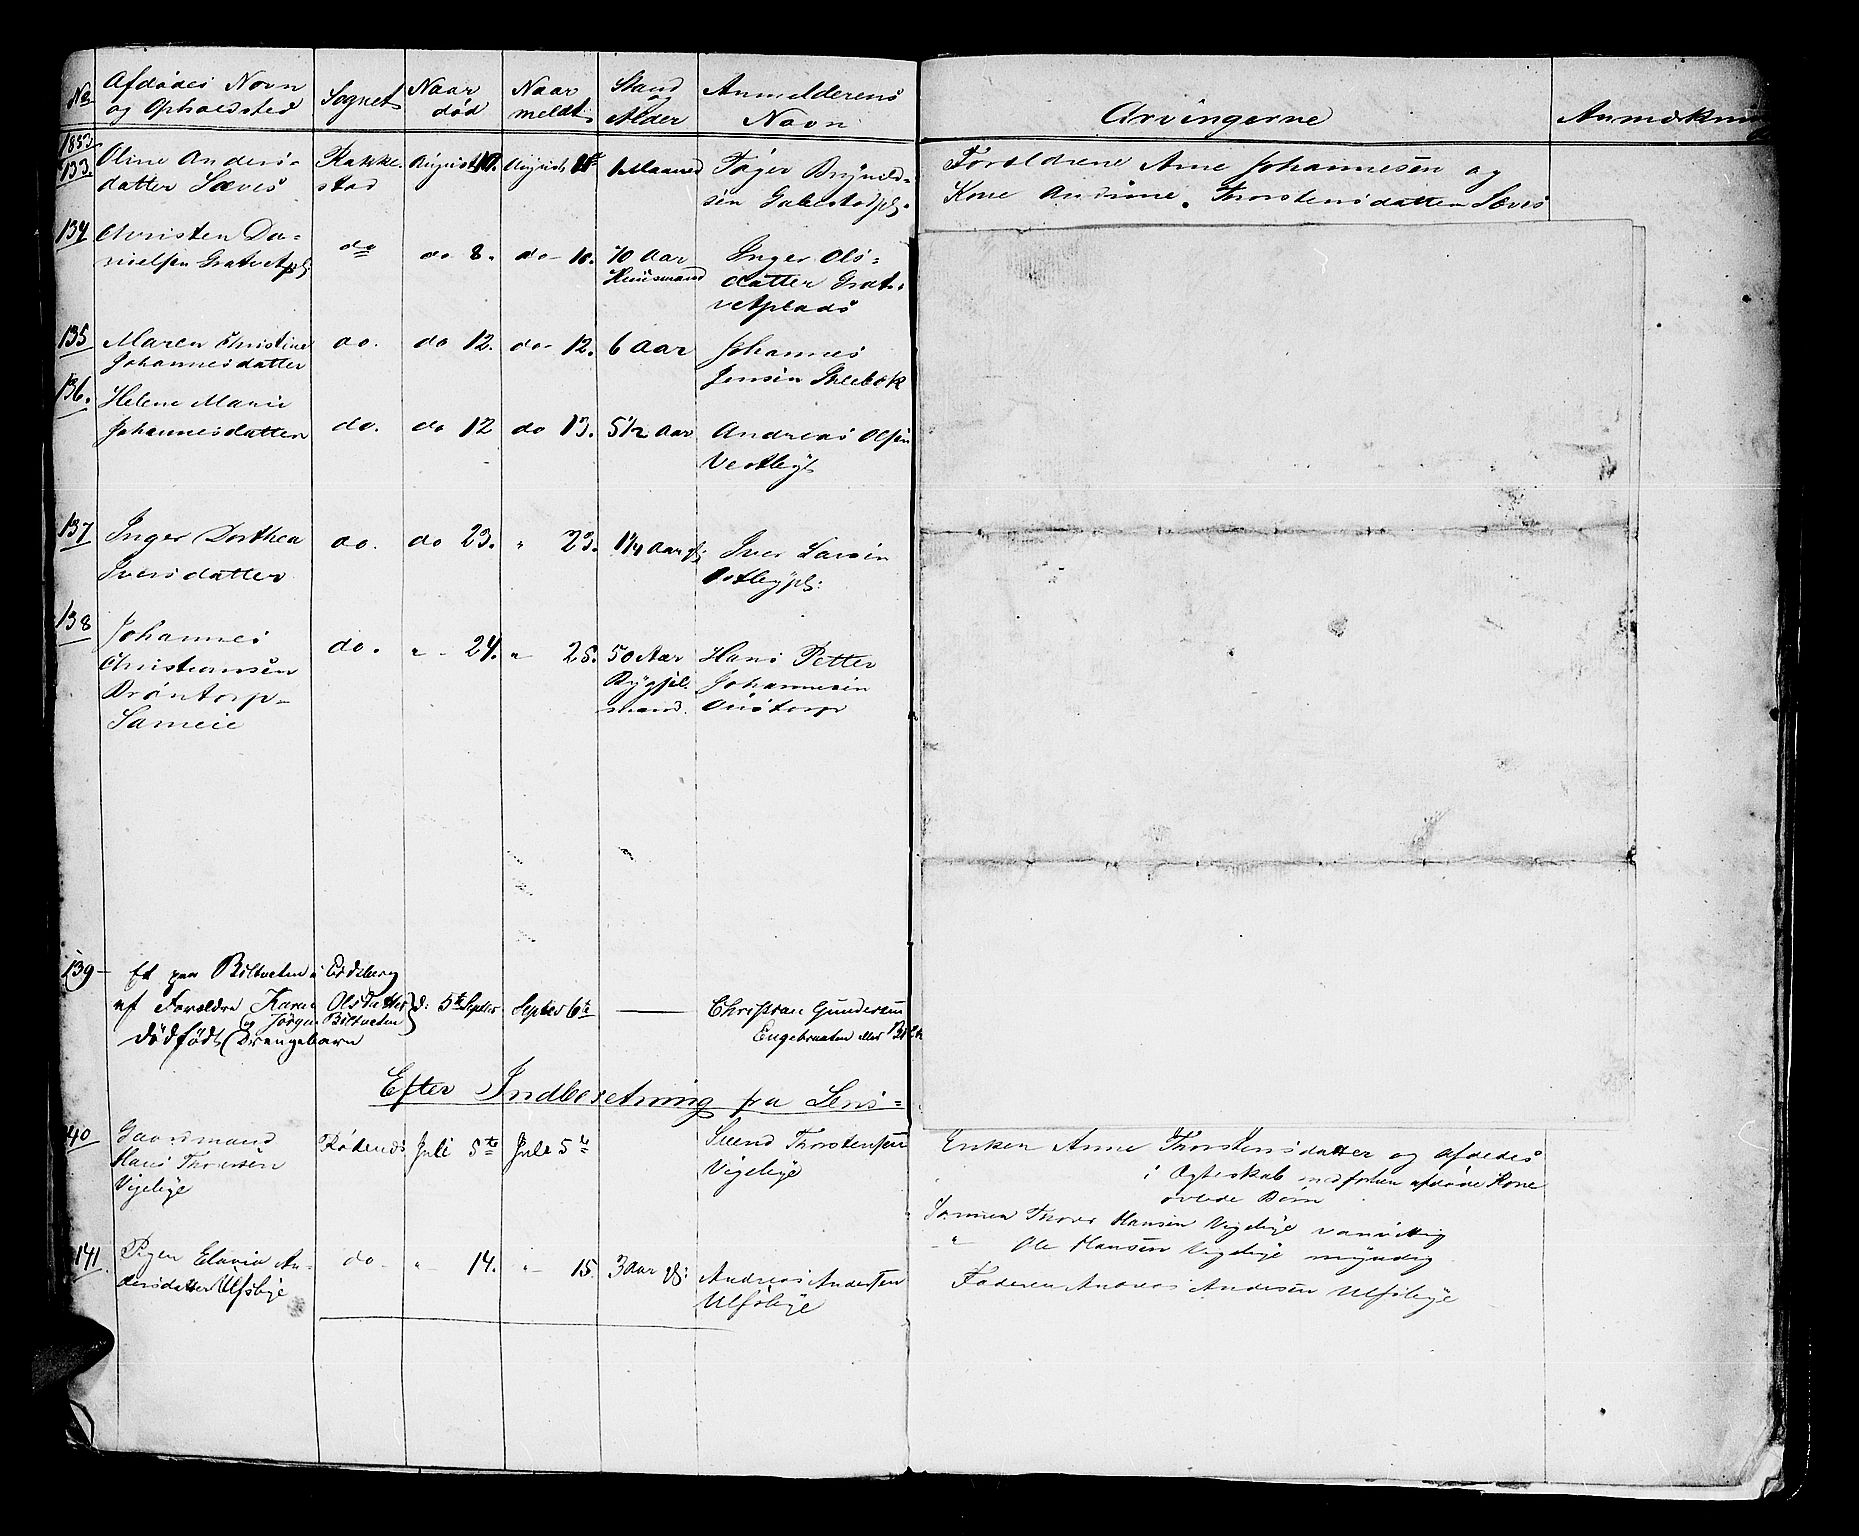 No
Afdødes Navn
og Opholdsted
Sognet
Naar
død
Naar
meldt
Stand
og
Alder
Anmelderens
Navn
Arvingerne
Anmærkning
1853
133.
Oline Anders-
datter Sæves
Rakke-
stad
August 10.
August
1 Maaned
Forældrene Arne Johannesen og
Kone Andrine Thorstensdatter Sæves
134
Christen Da-
nielsen
do
do 8.
do 10.
70 Aar
Huusmand
Inger Ols-
datter
135
Maren Christine
Johannesdatter
do.
do 12.
do 12.
6 Aar
Johannes
Jensen
136.
Helene Marie
Johannesdatter
do.
do 12
do 13.
5 1/2 Aar
Andreas Olsen
Vestby
137
Inger Dorthea
Iversdatter
do.
do 23.
" 23.
1 1/4 Aar
Iver Larsen
Østbypl:
138
Johannes
Christiansen
Drøntorp-
Sameie
do.
" 24.
" 25.
50 Aar
mand.
Hans Petter
Johannesen
139
Et paa Biltveten i Eidsberg
af Forældre Karen Olsdatter
og Jørgen Biltveten
d: 5te Septer
Septer 6te
dødfødt Drengebarn
Christian Gundersen
Engebraaten eller
Efter Indberetning fra Lens-
140
Gaardmand
Hans Thoresen
Vigebye
Rødenæs
Juli 5te
Juli 5te
Svend Thorstensen
Vigebye
Enken Anne Thorstensdatter og Afdødes
i Ægteskab med forhen afdøde Kone
avlede Børn
Sønnen Thore Hansen Vigebye vanvittig
" Ole Hansen Vigebye myndig
141
Pigen An-
dersdatter Ulfsbye
do.
" 14.
" 15.
3 Aar
Andreas Andersen
Ulfsbye
Faderen Andreas Andersen Ulfsbye